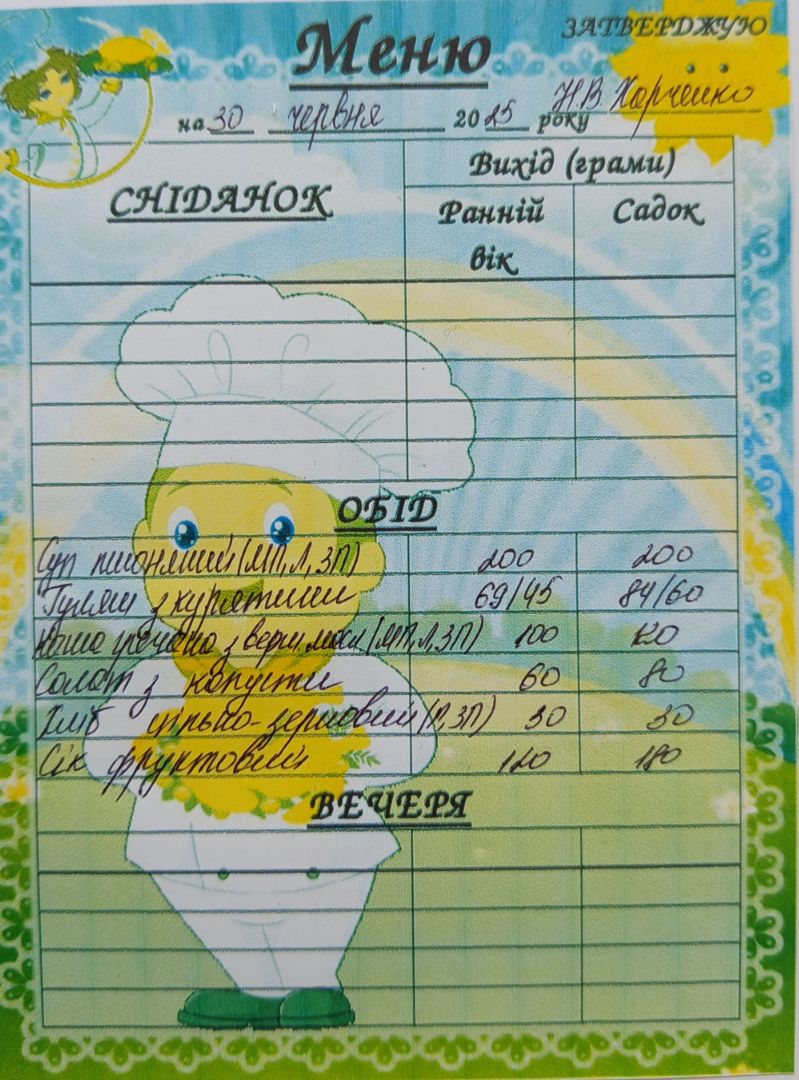 Меню
ЗАТВЕРДЖУЮ
на 30 червня 2025 року Н.В. Харченко
СНІДАНОК
Вихід (грами)
Ранній вік
Садок
ОБІД
Суп пшоняний (МП, Л, ЗП) 200 200
Гуляш з курятини 69/45 84/60
Каша гречана з верш. масл (МП, Л, ЗП) 100 120
Солат з капусти 60 80
Хліб цільно-зерновий (Р, ЗП) 30 30
Сік фруктовий 120 180
ВЕЧЕРЯ